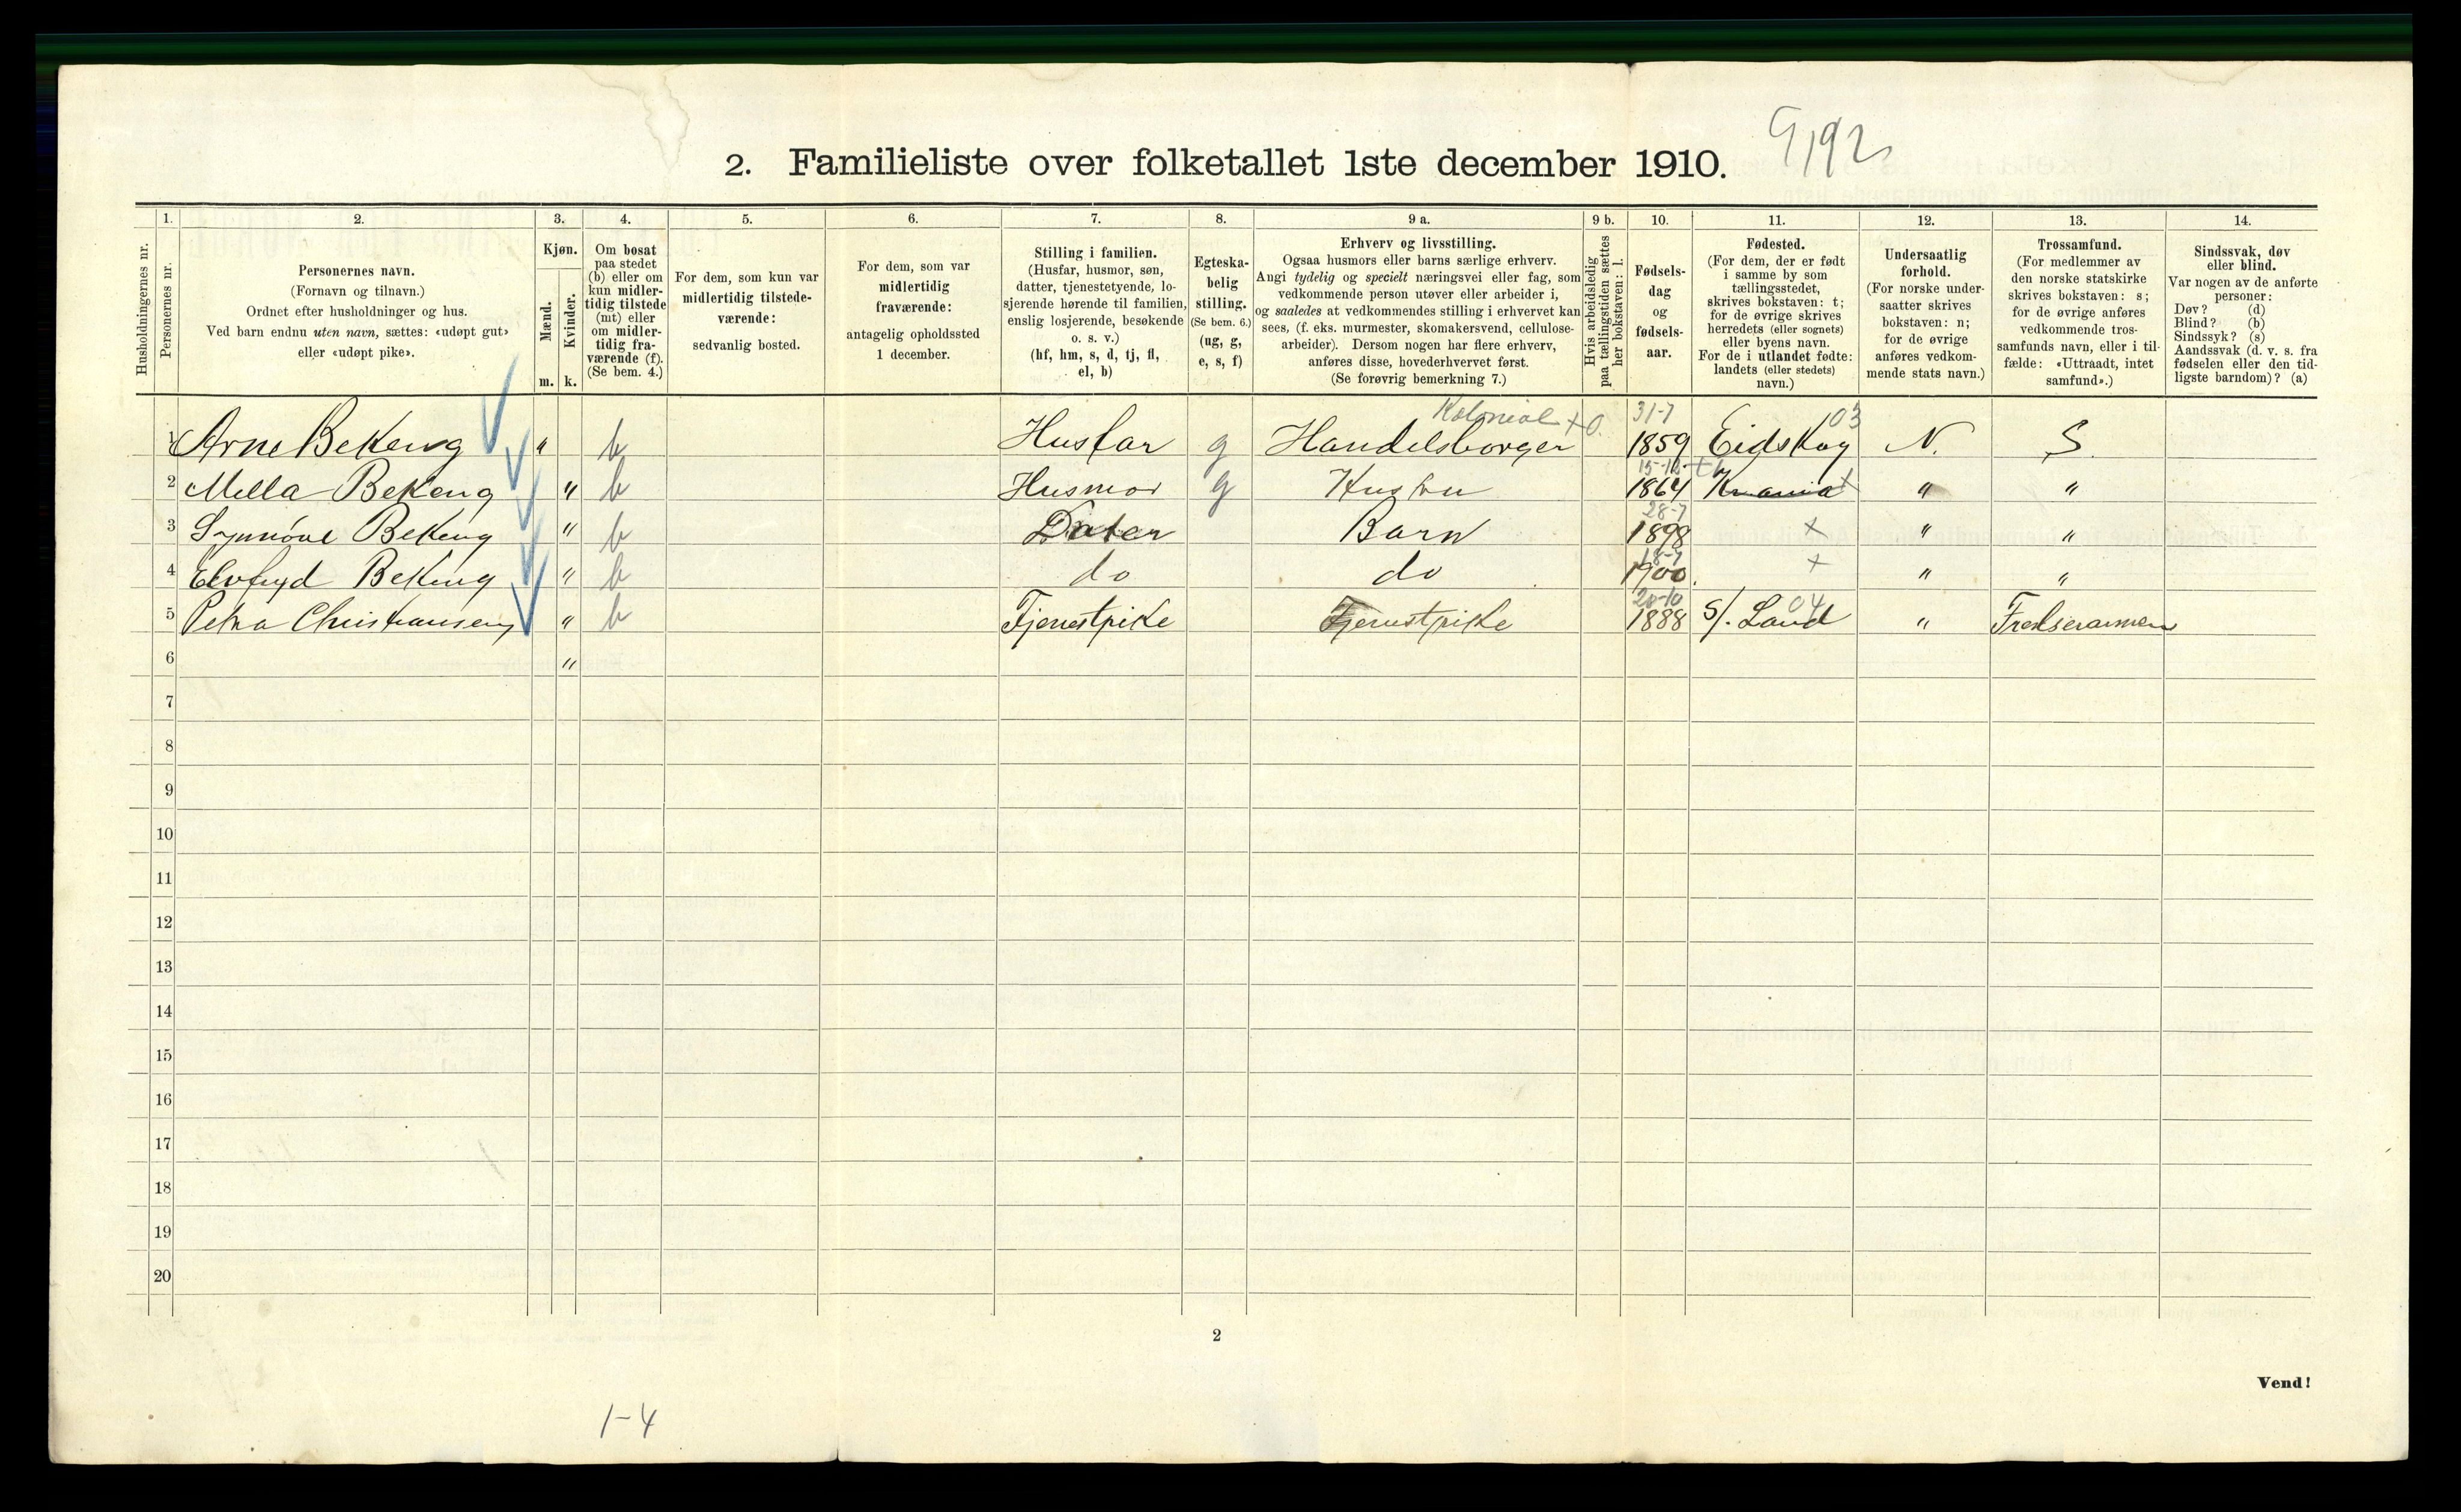 2. Familieliste over folketallet 1ste december 1910.
9192
Husholdningernes nr.
1. Personernes nr.
2. Personernes navn. (Fornavn og tilnavn.) Ordnet efter husholdninger og hus. Ved barn endnu uten navn, sættes: «udøpt gut» eller «udøpt pike».
3. Kjøn. Mænd. m. Kvinder. k.
4. Om bosat paa stedet (b) eller om kun midler-tidig tilstede (mt) eller om midler-tidig fra-værende (f). (Se bem. 4.)
5. For dem, som kun var midlertidig tilstede-værende: sedvanlig bosted.
6. For dem, som var midlertidig fraværende: antagelig opholdssted 1 december.
7. Stilling i familien. (Husfar, husmor, søn, datter, tjenestetyende, lo-sjerende hørende til familien, enslig losjerende, besøkende o. s. v.) (hf, hm, s, d, tj, fl, el, b)
8. Egteska-belig stilling. (Se bem. 6.) (ug, g, e, s, f)
9 a. Erhverv og livsstilling. Ogsaa husmors eller barns særlige erhverv. Angi tydelig og specielt næringsvei eller fag, som vedkommende person utøver eller arbeider i, og saaledes at vedkommendes stilling i erhvervet kan sees, (f. eks. murmester, skomakersvend, cellulose-arbeider). Dersom nogen har flere erhverv, anføres disse, hovederhvervet først. (Se forøvrig bemerkning 7.)
9 b. Hvis arbeidsledig paa tællingstiden sættes her bokstaven: l.
10. Fødsels-dag og fødsels-aar.
11. Fødested. (For dem, der er født i samme by som tællingsstedet, skrives bokstaven: t; for de øvrige skrives herredets (eller sognets) eller byens navn. For de i utlandet fødte: landets (eller stedets) navn.)
12. Undersaatlig forhold. (For norske under-saatter skrives bokstaven: n; for de øvrige anføres vedkom-mende stats navn.)
13. Trossamfund. (For medlemmer av den norske statskirke skrives bokstaven: s; for de øvrige anføres vedkommende tros-samfunds navn, eller i til-fælde: «Uttraadt, intet samfund».)
14. Sindssvak, døv eller blind. Var nogen av de anførte personer: Døv? (d) Blind? (b) Sindssyk? (s) Aandssvak (d. v. s. fra fødselen eller den tid-ligste barndom)? (a)
Kolonial +0. 31-7 103
1 Arne Bekeng " b Husfar g Handelsborger 1859 Eidskog N. S.
15-12 t
2 Milla Bekeng " b Husmor g Hustru 1864 Krania " "
28-7
3 Synnöve Bekeng " b Dater Barn 1898 + " "
18-7
4 Bekeng " b do do 1900. + " "
20-10 04
5 Petra Christiansen " b Tjenestpike Tjenestpike 1888 S/. Land " Frelserarmen
6 "
7
8
9
10
11
12
13
14
15
16
17
18
19
20
2
Vend!
1-4